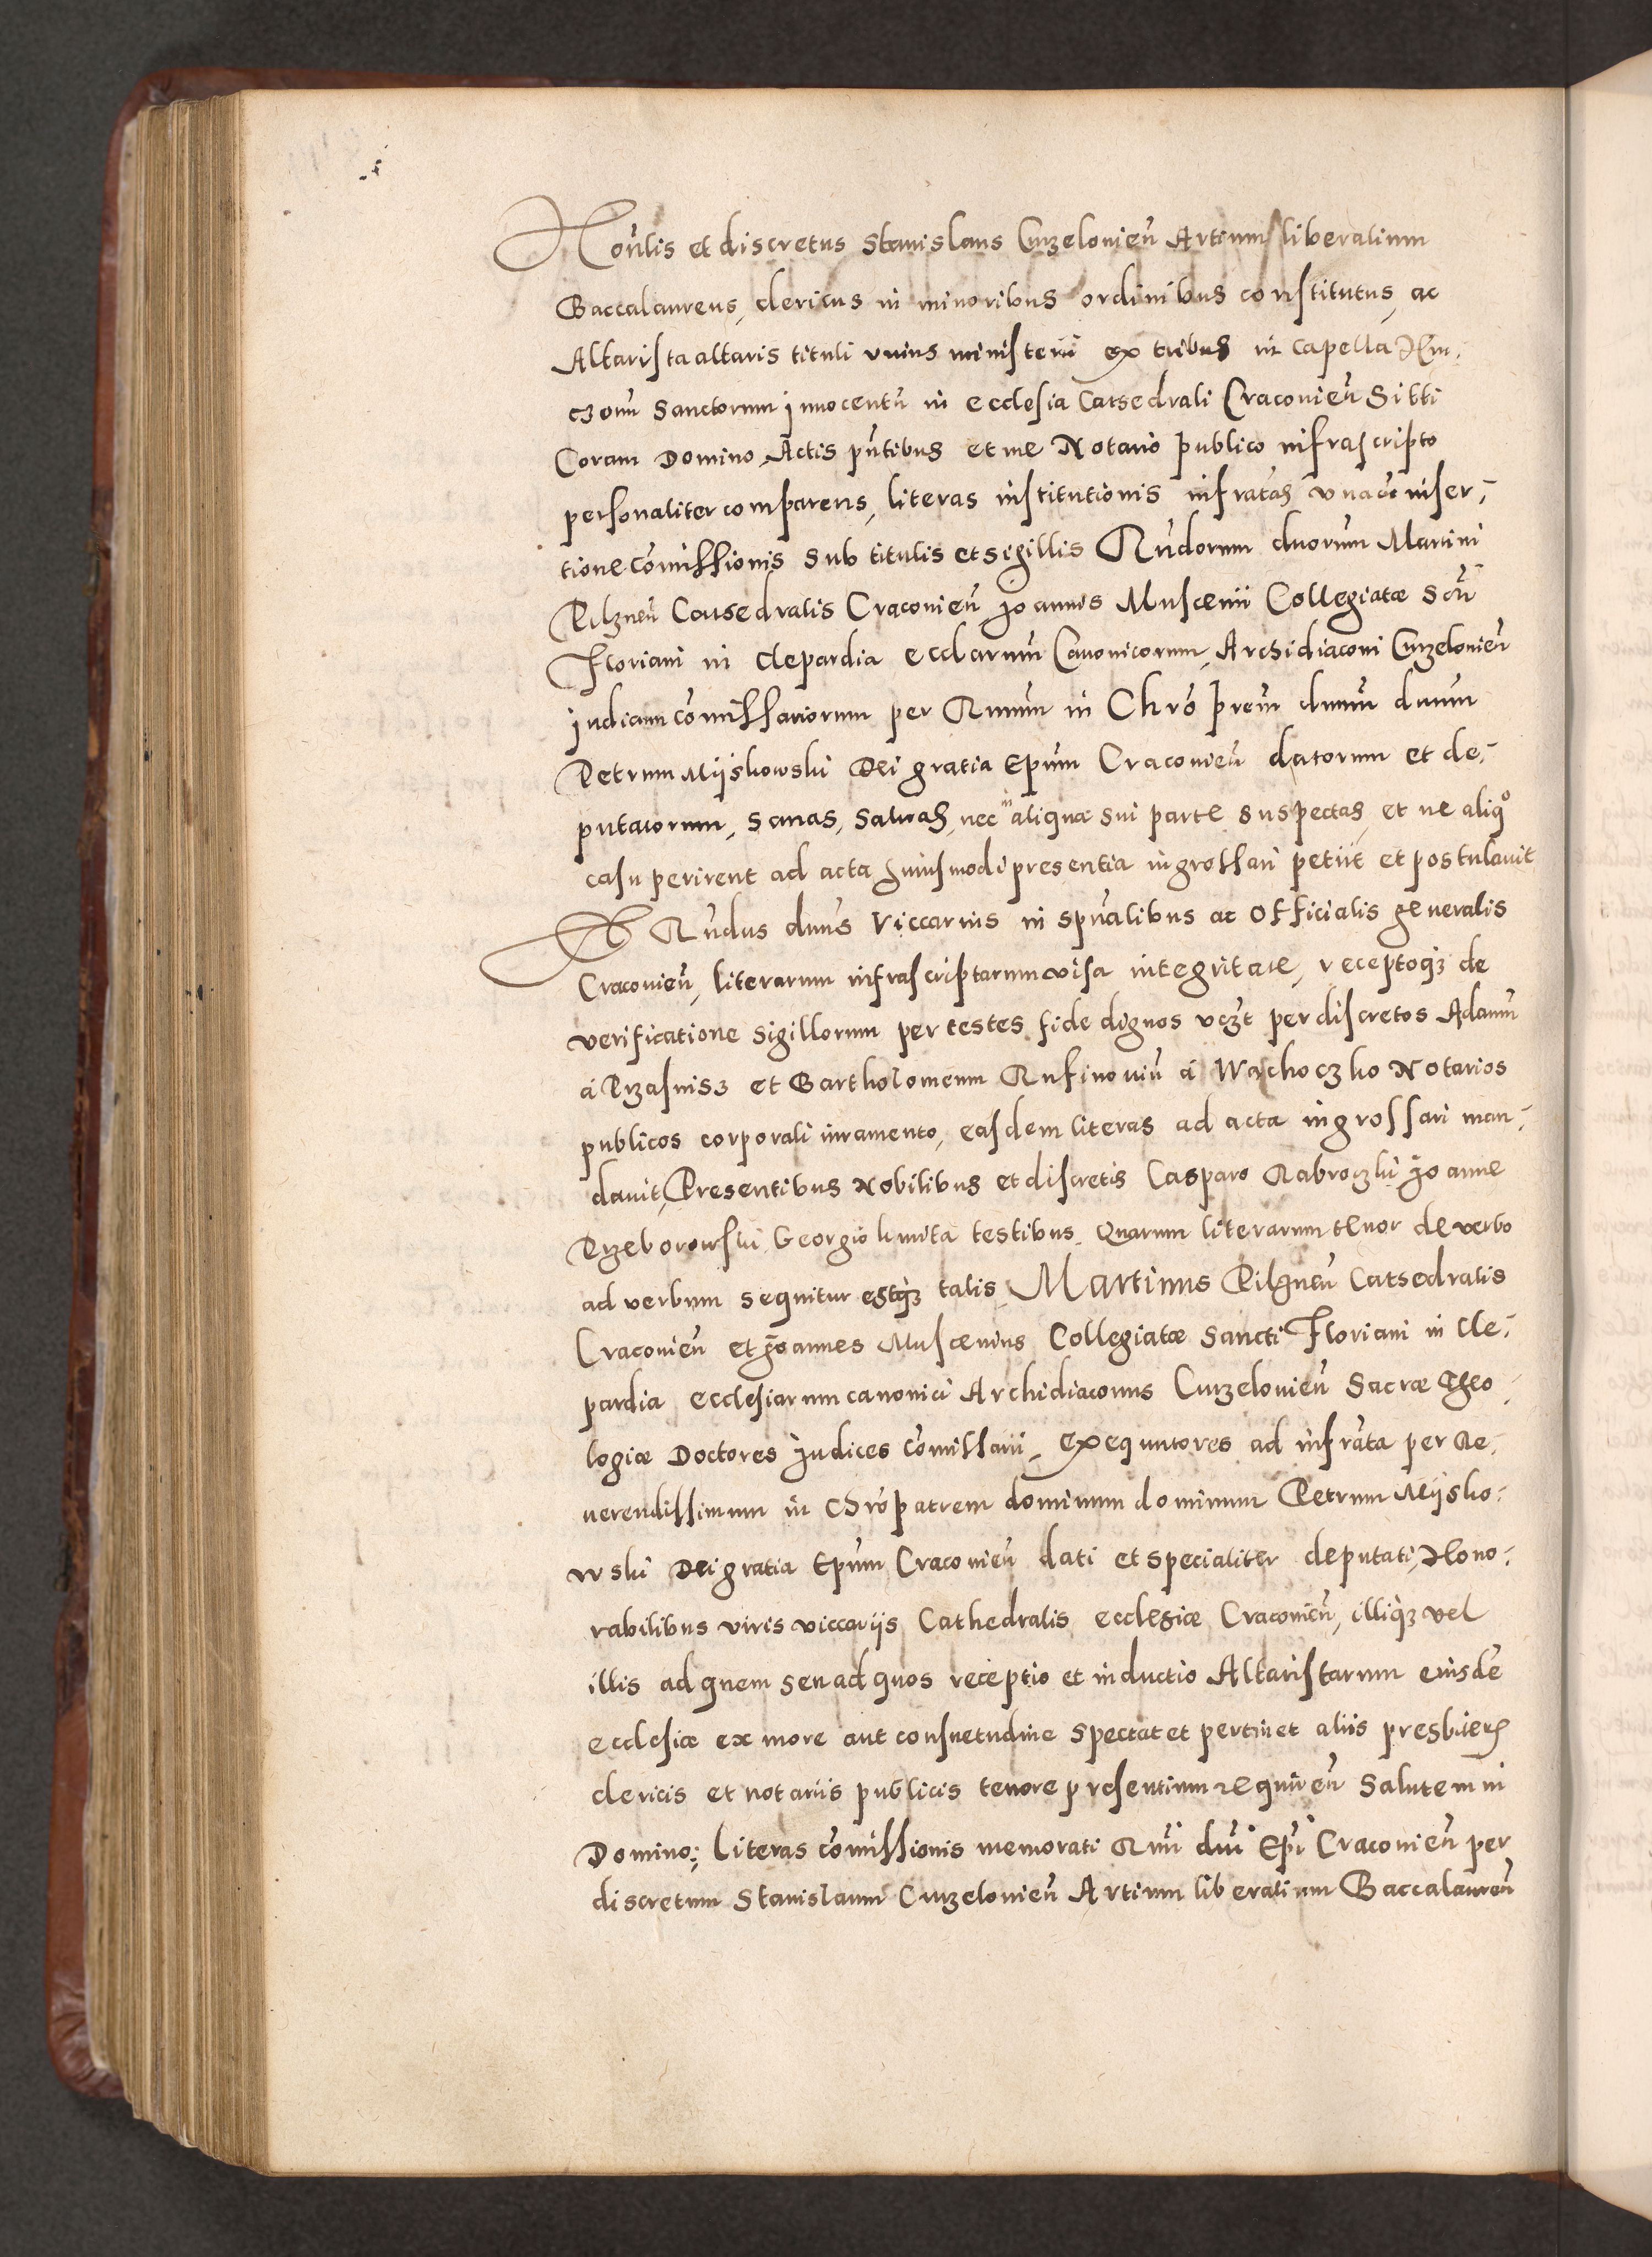 Hon̄lis et discretus Stanislaus Curzelovien̄ Artium liberalium
Baccalaureus, clericus in minoribus ordinibus constitutus, ac
Altarista altaris tituli unius ministerii ex tribus in Capella
Sanctorum Innocentū in ecclesia Cathedrali Cracovien̄ Sitti
Coram Domino Actis pn̄tibus et me Notario publico infrascripto
personaliter comparens, literas institutionis infratas unacū inser-
tione com̄issionis sub titulis et sigillis Rn̄dorum duorum Martini
Pilznen̄ Cathedralis Cracovien̄ Joannis Muscenii Collegiatæ Scti
Floriani in Clepardia eccl̄arum Canonicorum, Archidiaconi Curzelovien̄
Judicum com̄issariorum per Rmūm in Chrō prēm dnūm dnūm
Petrum Mijskowski Dei gratia Ep̄um Cracovien̄ datorum et de-
putatorum, sanas, salvas, nec in aliqua sui parte suspectas, et ne aliqo
casu perirent ad acta huiusmodi presentia ingrossari petiit et postulavit
Rn̄dus dnūs Viccarius in spūalibus ac Officialis generalis
Cracovien̄, literarum infrascriptarum visa integritate, receptoq3 de
verificatione sigillorum per testes fide dignos vczt per discretos Adamū
á Przasnisz et Bartholomeum Rufinoviū á Wachoczko Notarios
publicos corporali iuramento, easdem literas ad acta ingrossari man-
davit, Presentibus Nobilibus et discretis Casparo Rabroczki Joanne
Przeborowski Georgio limita testibus. Quarum literarum tenor de verbo
ad verbum sequitur estq3 talis Martinus Pilznen̄ Cathedralis
Cracovien̄ et Joannes Muscenius Collegiatæ Sancti Floriani in Cle-
pardia ecclesiarum canonici Archidiaconus Curzelovien̄ Sacræ Theo-
logiæ Doctores Judices com̄issarii, exequutores ad infrāta per Re-
verendissimum in Chrō patrem dominum dominum Petrum Mijsko-
wski Dei gratia Ep̄um Cracovien̄ dati et specialiter deputati, Hono-
rabilibus viris viccariis Cathedralis ecclesiæ Cracovien̄, illiq3 vel
illis ad quem seu ad quos receptio et inductio Altaristarum eiusdē
ecclesiæ ex more aut consuetudine spectat et pertinet aliis presbiteris
clericis et notariis publicis tenore presentium requiren̄ Salutem in
Domino; Literas com̄issionis memorati Rmī dnī Ep̄i Cracovien̄ per
discretum Stanislaum Curzelovien̄ Artium liberalium Baccalaureū